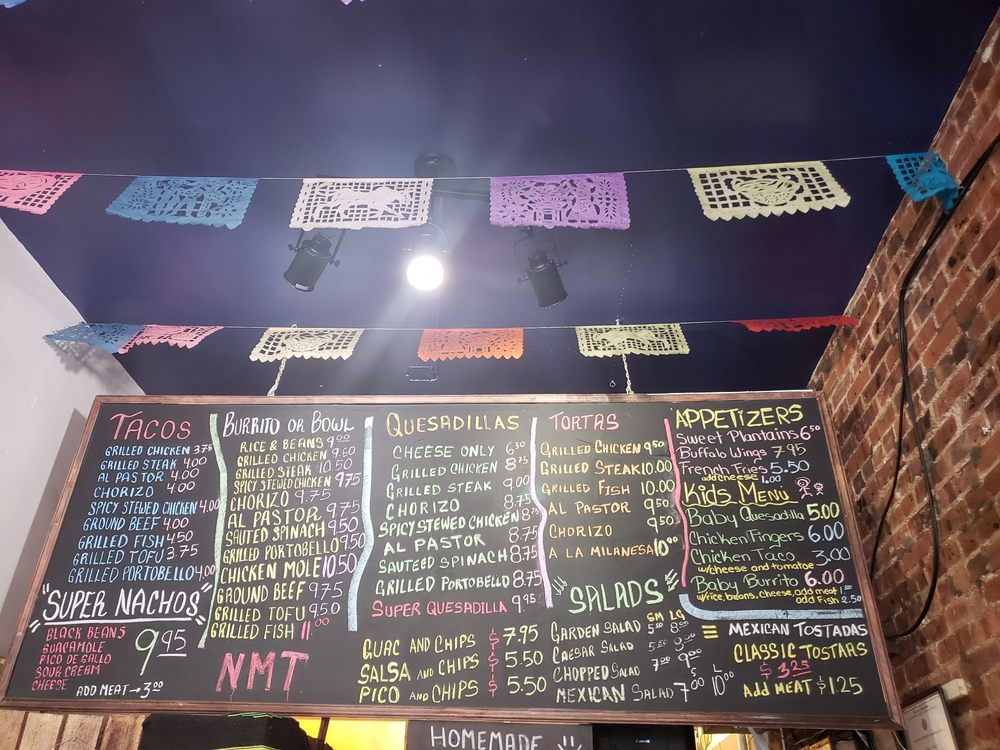 TACOS
GRILLED CHICKEN 3.75
GRILLED STEAK 4.00
AL PASTOR 4.00
CHORIZO 4.00
SPICY STEWED CHICKEN 4.00
GROUND BEEF 4.00
GRILLED FISH 4.50
GRILLED TOFU 3.75
GRILLED PORTOBELLO 4.00
"SUPER NACHOS"
BLACK BEANS
GUACAMOLE
PICO DE GALLO
SOUR CREAM
CHEESE
9.95
ADD MEAT → 3.00
BURRITO OR BOWL
RICE & BEANS 9.00
GRILLED CHICKEN 9.60
GRILLED STEAK 10.50
SPICY STEWED CHICKEN 9.75
CHORIZO 9.75
AL PASTOR 9.75
SAUTED SPINACH 9.50
GRILLED PORTOBELLO 9.50
CHICKEN MOLE 10.50
GROUND BEEF 9.75
GRILLED TOFU 9.50
GRILLED FISH 11.00
NMT
QUESADILLAS
CHEESE ONLY 6.50
GRILLED CHICKEN 8.75
GRILLED STEAK 9.00
CHORIZO 8.75
SPICY STEWED CHICKEN 8.75
AL PASTOR 8.75
SAUTEED SPINACH 8.75
GRILLED PORTOBELLO 8.75
SUPER QUESADILLA 9.95
GUAC AND CHIPS $7.95
SALSA AND CHIPS $5.50
PICO AND CHIPS $5.50
TORTAS
GRILLED CHICKEN 9.50
GRILLED STEAK 10.00
GRILLED FISH 10.00
AL PASTOR 9.50
CHORIZO 9.50
A LA MILANESA 10.00
SALADS
SM LG
GARDEN SALAD
CAESAR SALAD
CHOPPED SALAD 7.00 9.00
MEXICAN SALAD 7.00 10.00
APPETIZERS
Sweet Plantains 6.50
Buffalo Wings 7.95
French Fries 5.50
add cheese 1.00
Kids Menu
Baby Quesadilla 5.00
Chicken Fingers 6.00
Chicken Taco 3.00
w/cheese and tomatoe
Baby Burrito 6.00
w/rice, beans, cheese, add meat
add Fish 2.50
MEXICAN TOSTADAS
CLASSIC TOSTARS
$3.25
ADD MEAT $1.25
HOMEMADE